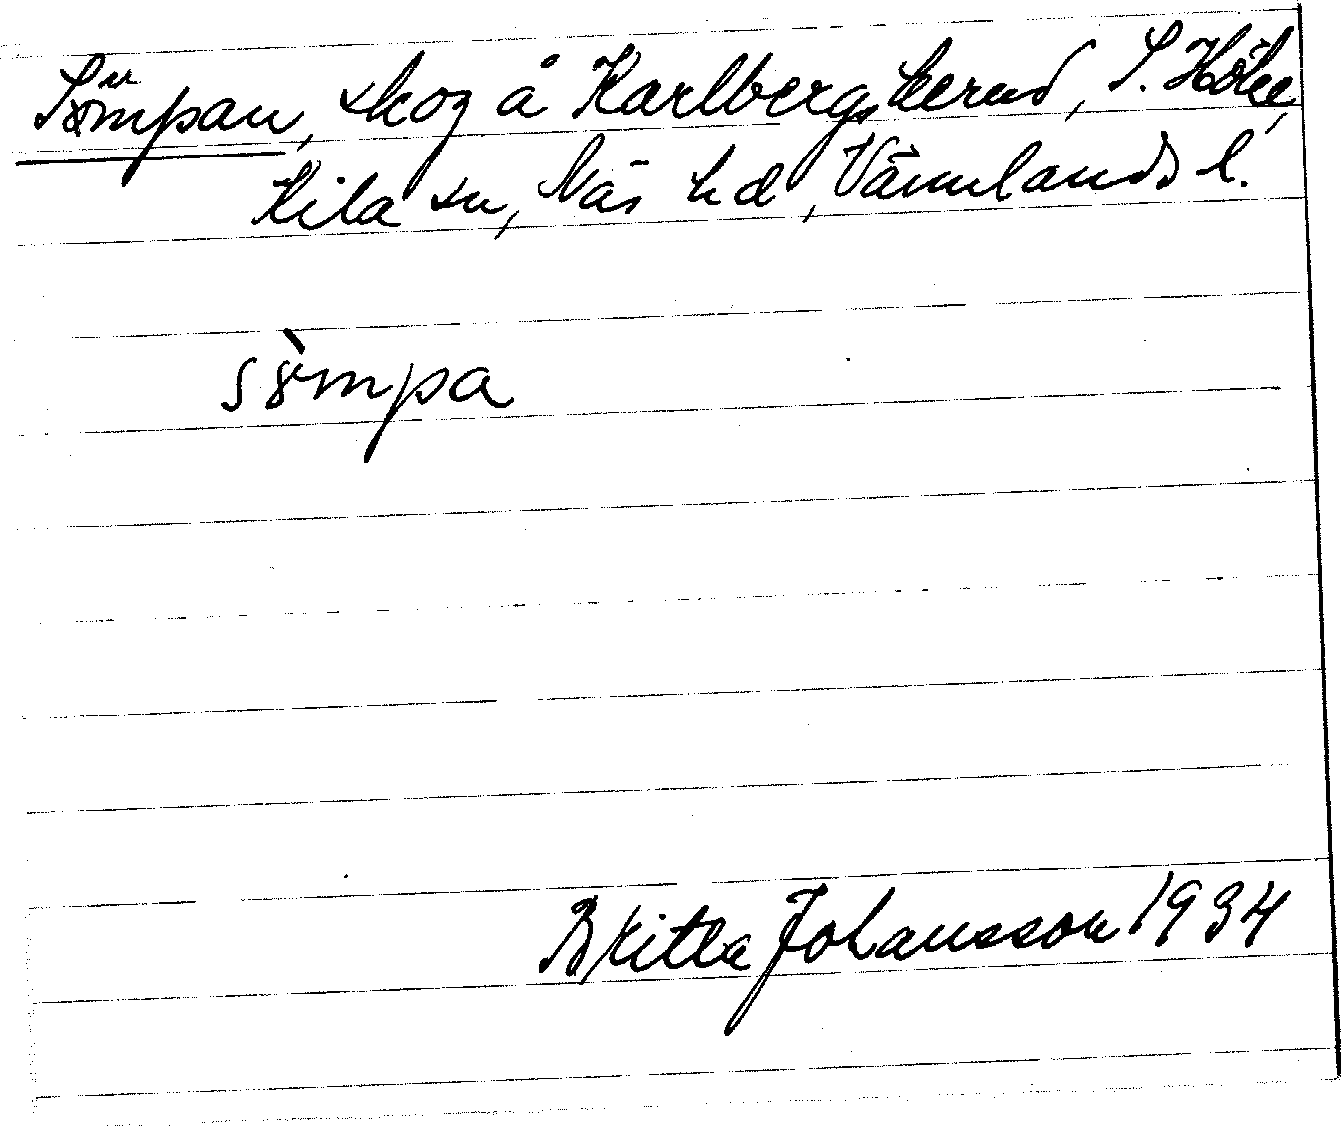 Sömpan, skog å Karlbergskerud, S. Höke,
Kila sn, Näs hd, Värmlands l.
sömpa
Britta Johansson 1934